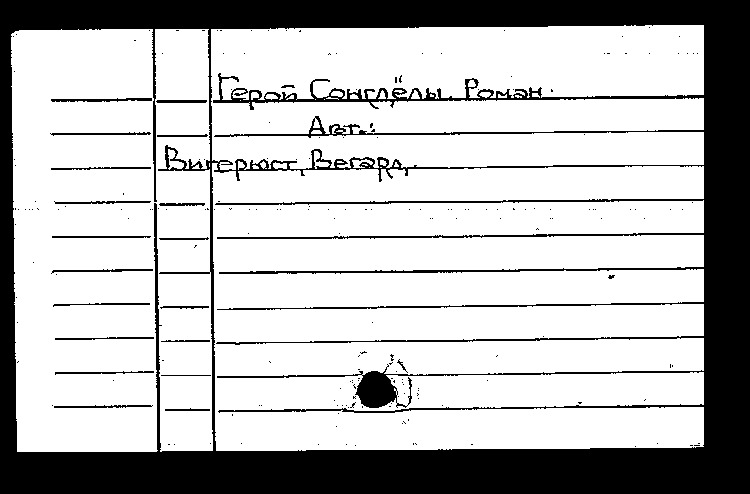 Герой Сонглёлы. Роман.
Авт.:
Вигерюст, Вегард.